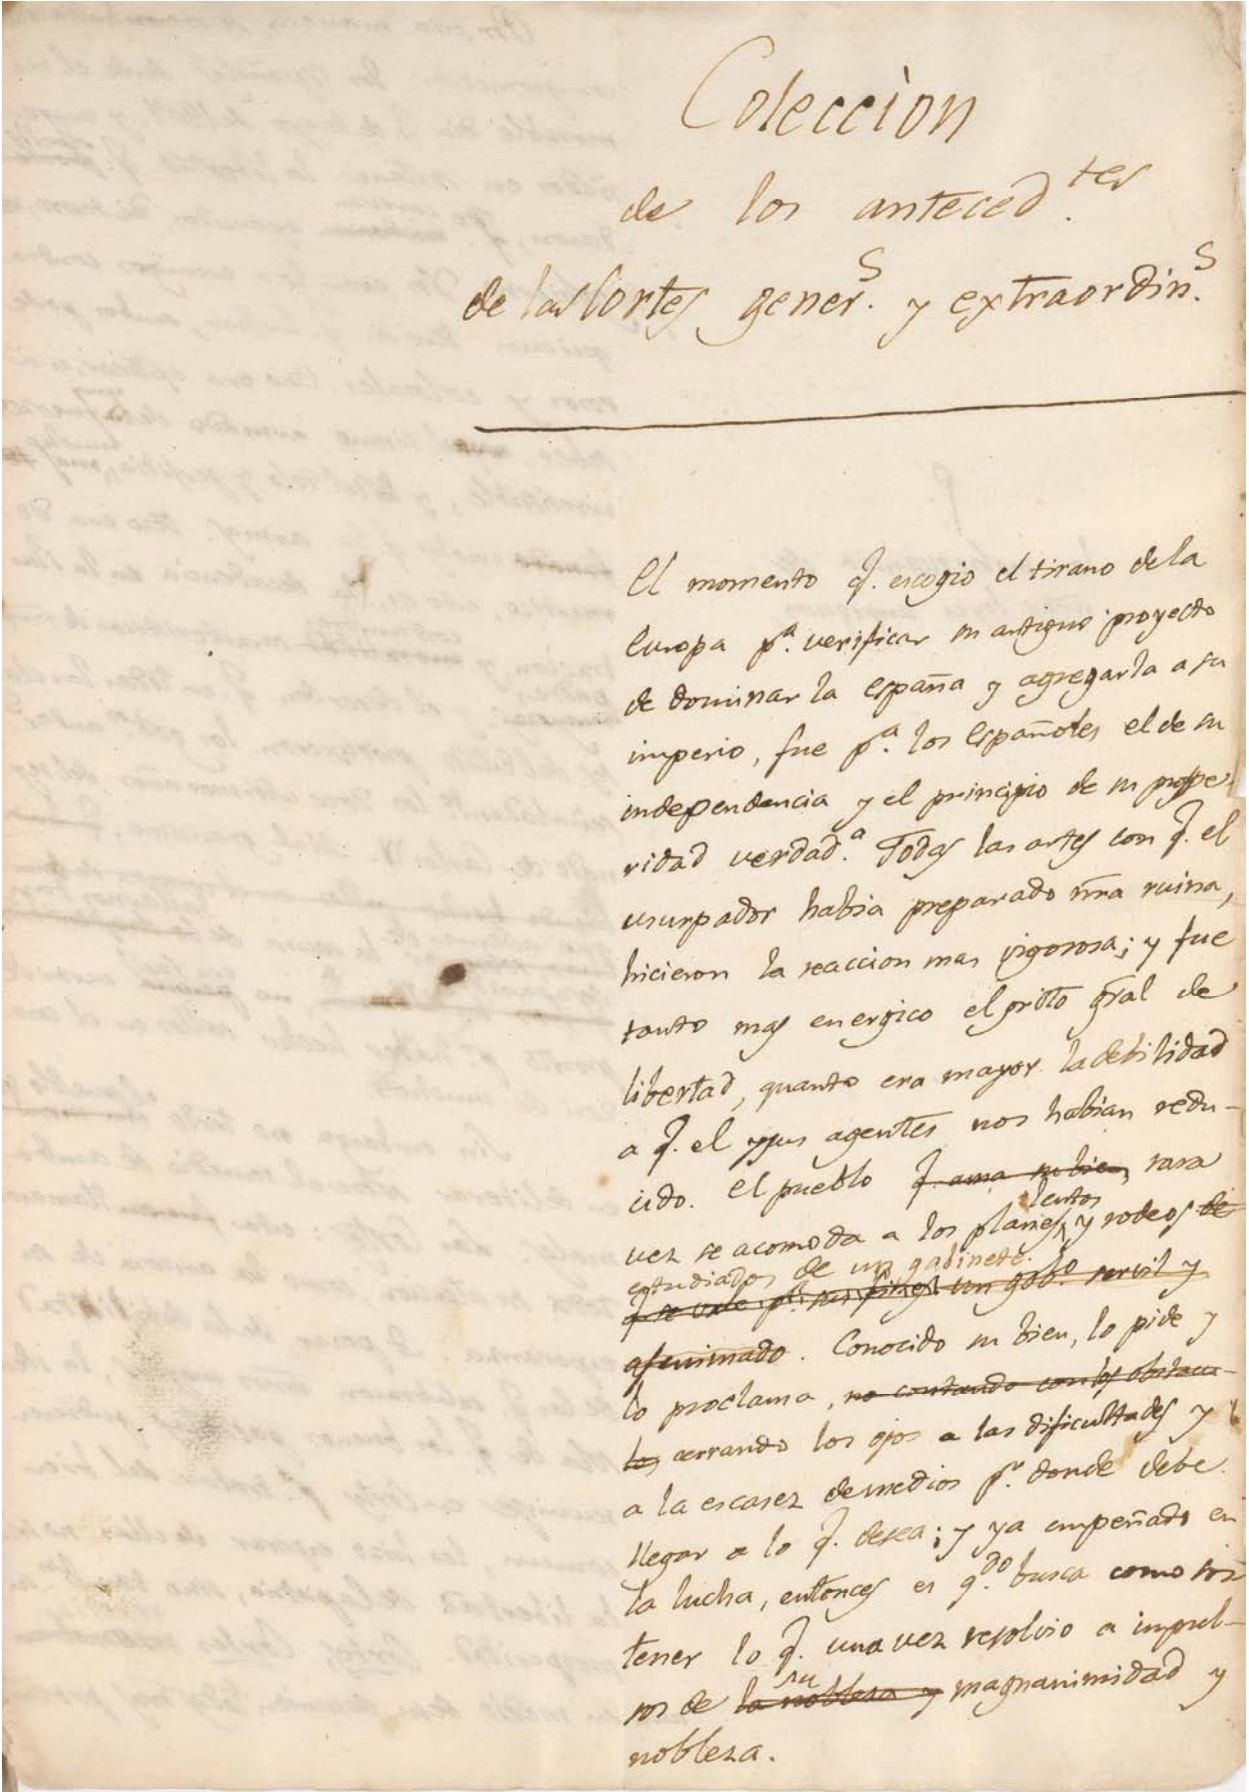 Coleccion
de los anteced.tes
de las Cortes gener.s y extraordin.s
El momento q. escogio el tirano de la
Europa p.a verificar su antiguo proyecto
de dominar la españa y agregarla a su
imperio, fue p.a los Españoles el de su
independencia y el principio de su prospe-
ridad verdad.a Todas las artes con q. el
usurpador habia preparado nra ruina,
hicieron la reaccion mas vigorosa; y fue
tanto mas energico el grito gral de
libertad, quanto era mayor la debilidad
a q. el y sus agentes nos habian redu-
cido. El pueblo q. ama su bien, rara
vez se acomoda a los planes lentos y rodeos de
estudiados de un gabinete.
q. se vale p.a sus fines un gob.o servil y
afeminado. Conocido su bien, lo pide y
lo proclama, no contando con los obstacu-
los cerrando los ojos a las dificultades y
a la escasez de medios p.r donde debe
llegar a lo q. desea; y ya empeñado en
la lucha, entonces es q.do busca como sos-
tener lo q. una vez resolvio a impul-
sos de la nobleza y su magnanimidad y
nobleza.